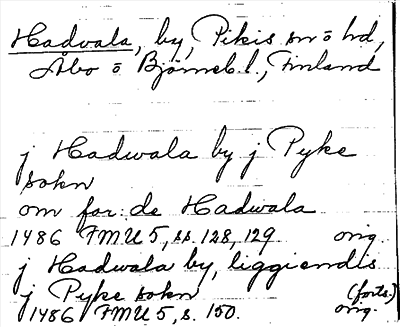 Hadvala, by, Pikis sn o hd,
Åbo o Björneb. l., Finland
j Hadwala by j Pyke
sokn
om for:de Hadwala
1486 FMU 5, ss. 128, 129 orig.
j Hadwala by, liggiendis
j Pyke sokn (forts.)
1486 FMU 5, s. 150. orig.